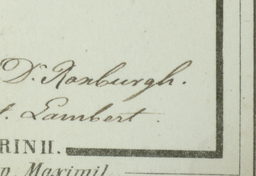 D. Roxburgh.
t. Lambert.
RINH.
n. Maximil